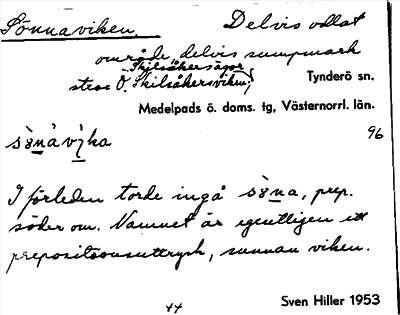 Sönnaviken Delvis odlat
område delvis sumpmark
Skilsåkersägor
strax Ö. Skilsåkersviken.
Tynderö sn.
Medelpads ö. doms. tg, Västernorrl. län.
96
I förleden torde ingå prep.
söder om. Namnet är egentligen ett
prepositionsuttryck, sunnan viken.
44 Sven Hiller 1953